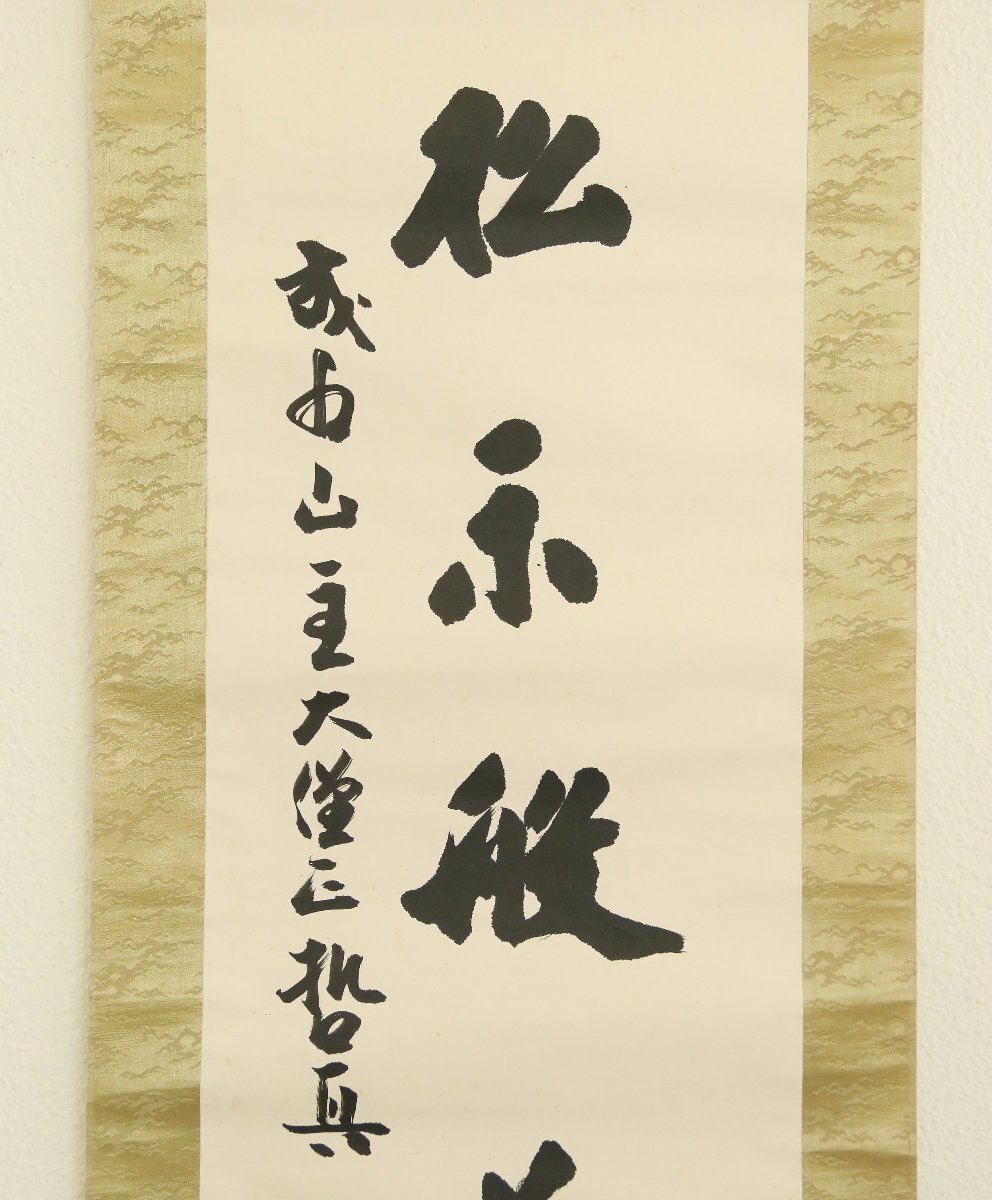 松示般
成田山主大僧正哲真